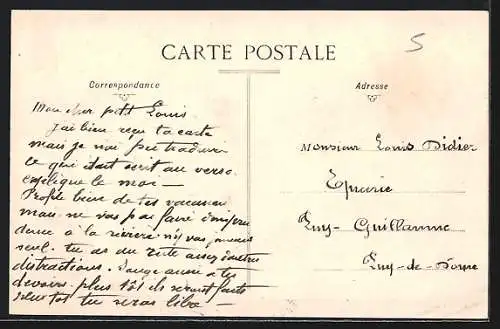 5
CARTE POSTALE
Correspondance
Adresse
Mon cher petit Louis
J'ai bien reçu ta carte
mais je n'ai pu traduire
ce qui était écrit au verso
explique le moi —
Profite bien de tes vacances
mais ne vas pas faire d'impru
dence à la rivière n'y vas jamais
seul. tu as du reste assez d'autres
distractions. Songe aussi à tes
devoirs. plus tôt ils seront faits
plus tôt tu seras libre —
Monsieur Louis Didier
Epicerie
Puy-Guillaume
Puy-de-Dome